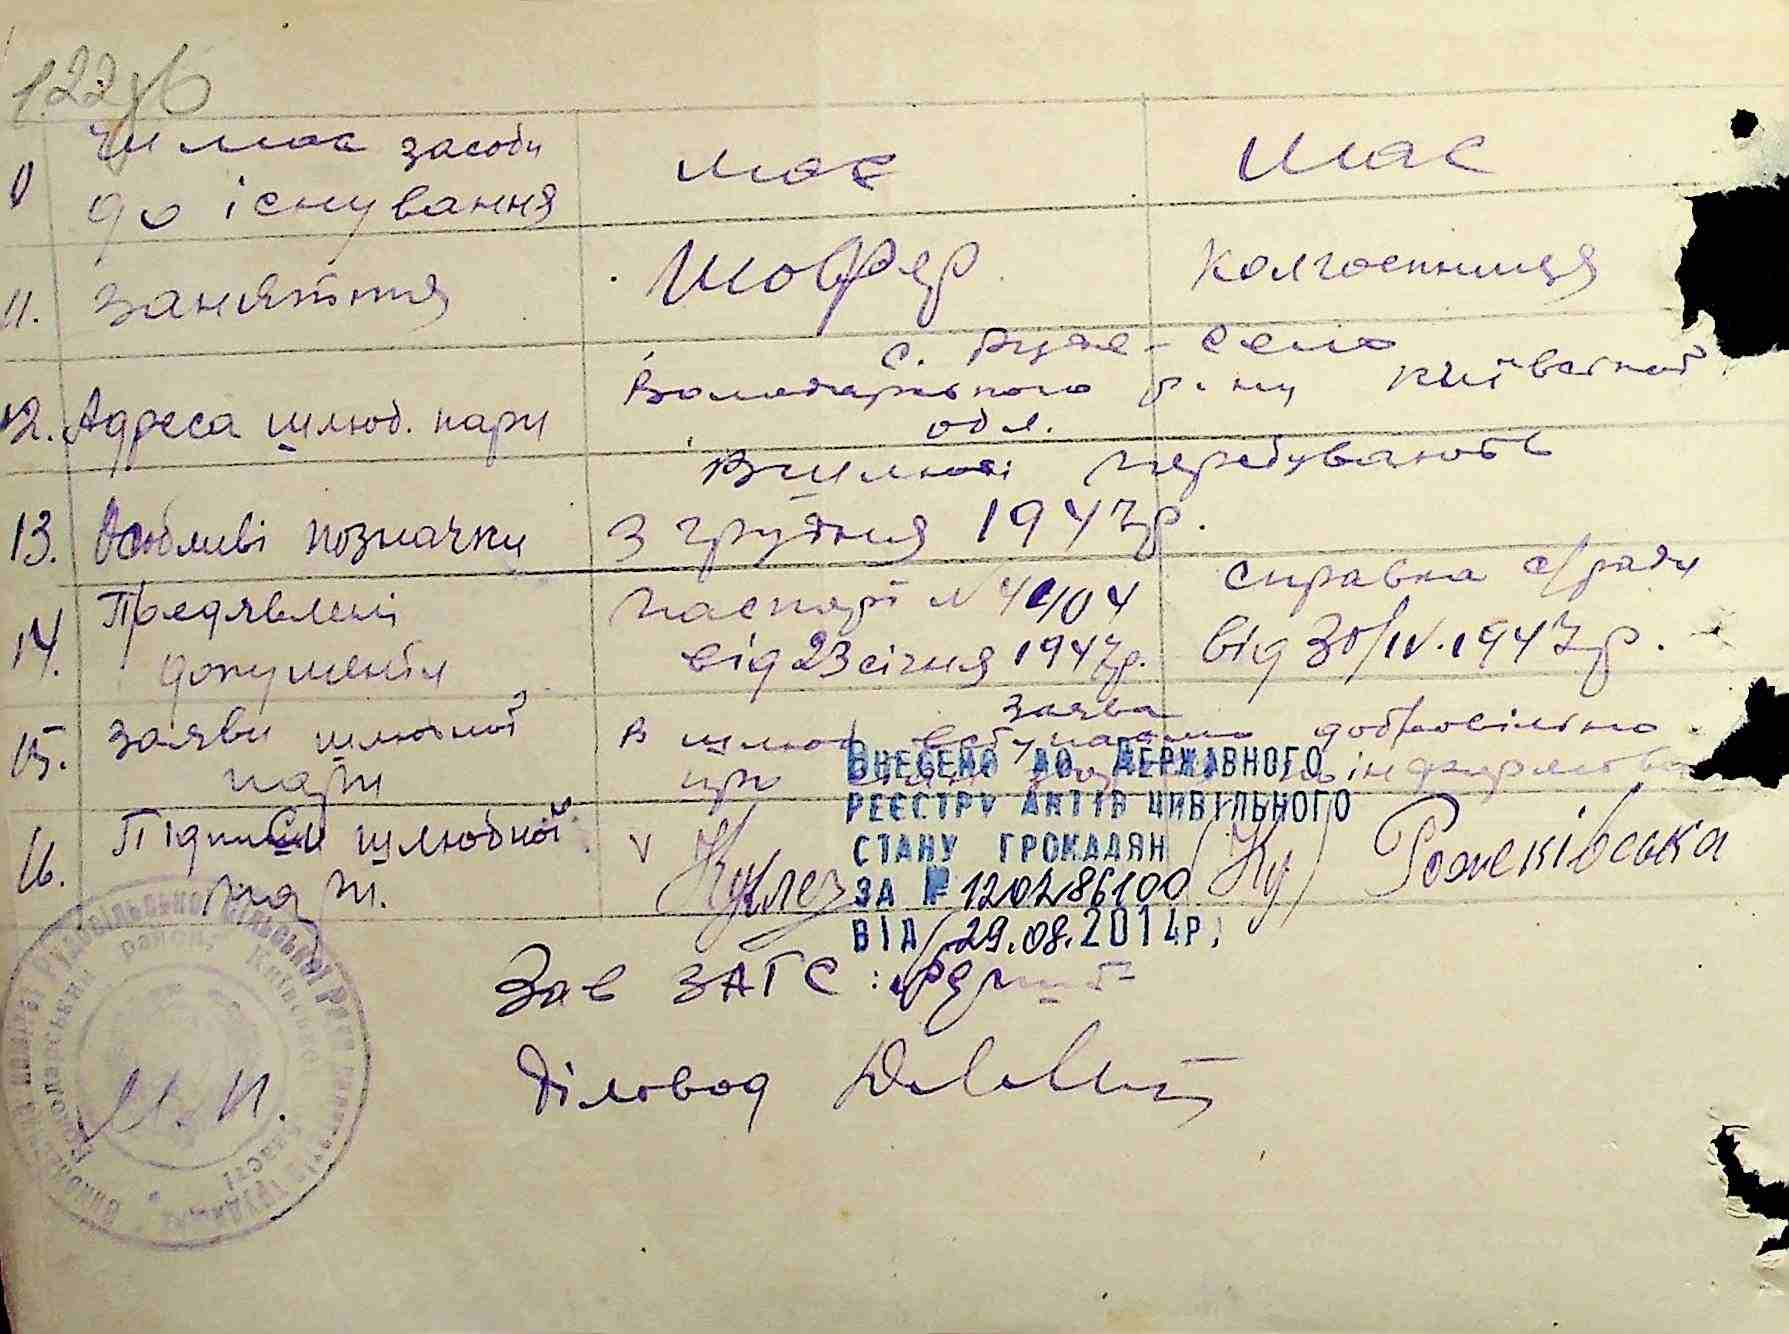 122зв
Чи має засоби
до існування
має
має
11. Заняття
Шофер
Колгоспниця
12. Адреса шлюб. пари
с. Руде-Село
Володарського р-ну Київської
обл.
13. Особливі позначки
В шлюбі перебувають
з грудня 1947р.
14. Предявлені
документи
паспорт №
від 23 січня 1947р.
справка с/ради
від 30/IV.1947р.
15. Заяви шлюбної
пари
Заява
В шлюб вступаємо добровільно
про
16. Підписи шлюбної
пари.
(Ку) Рожківська
ВНЕСЕНО ДО ДЕРЖАВНОГО
РЕЄСТРУ АКТІВ ЦИВІЛЬНОГО
СТАНУ ГРОМАДЯН
ЗА № 120286100
ВІД 29.08.2014р.
Зав ЗАГС:
Діловод
М. П.